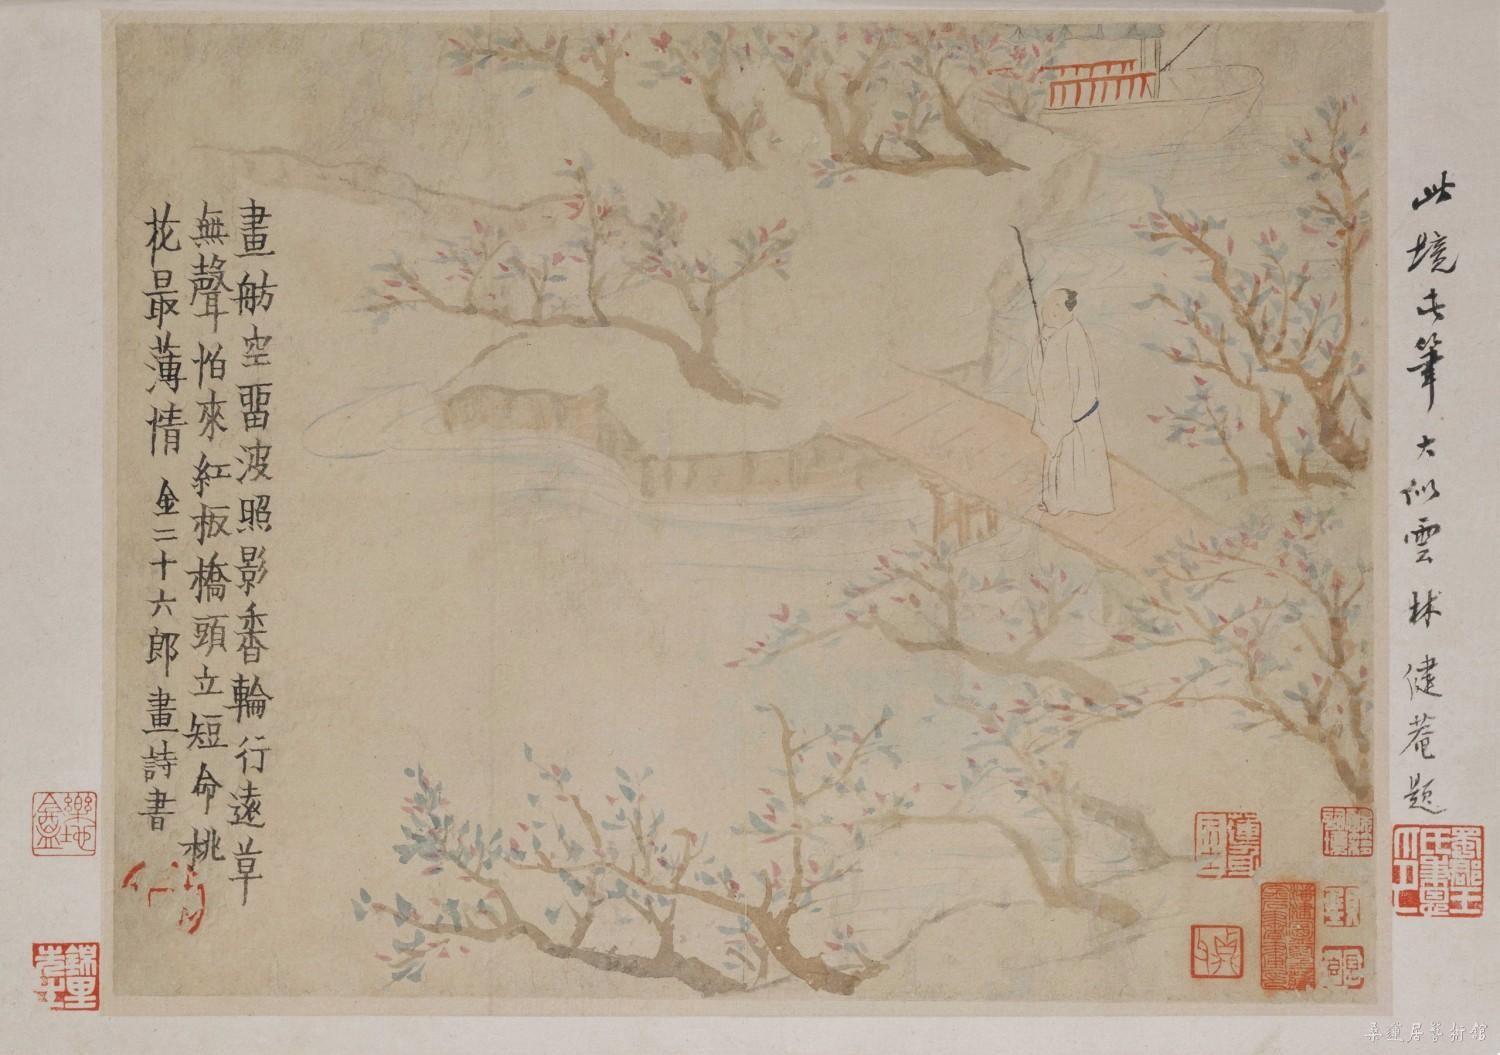 此境此筆大似雲林 健菴題
畫舫空留波照影香輪行遠草
無聲怕來紅板橋頭立短命桃
花最薄情 金二十六郎畫詩書
樂地盦
錦里先生
桑蓮居藝術館